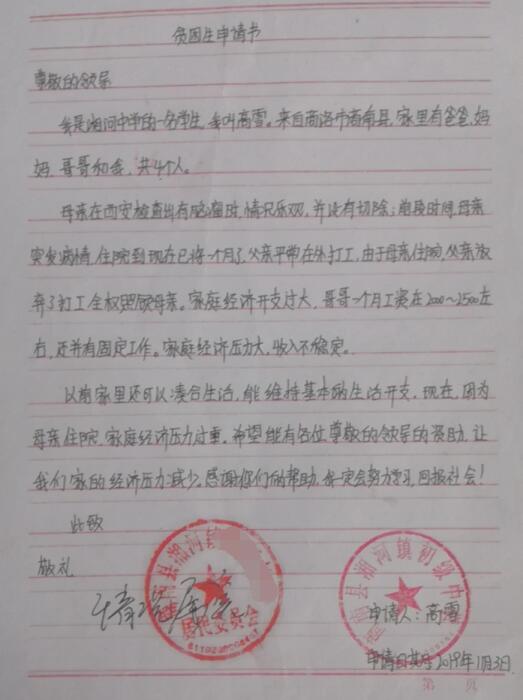 贫困生申请书
尊敬的领导
我是湘河中学的一名学生,我叫高雪。来自商洛市商南县,家里有爸爸,妈
妈,哥哥和我,共4个人。
母亲在西安检查出有脑瘤时,情况乐观,并没有切除;前段时间,母亲
突发病情,住院到现在已将一个月了,父亲平常在外打工,由于母亲住院,父亲放
弃了打工全权照顾母亲。家庭经济开支过大,哥哥一个月工资在2000~2500左
右,还并有固定工作。家庭经济压力大,收入不稳定。
以前家里还可以凑合生活,能维持基本的生活开支,现在,因为
母亲住院,家庭经济压力过重。希望能有各位尊敬的领导的资助,让
我们家的经济压力减少。感谢你们的帮助,我一定会努力学习,回报社会!
此致
敬礼
商南县湘河镇
居民委员会
情况属实
商南县湘河镇初级中
申请人:高雪
申请日期:2019年1月3日
第 页